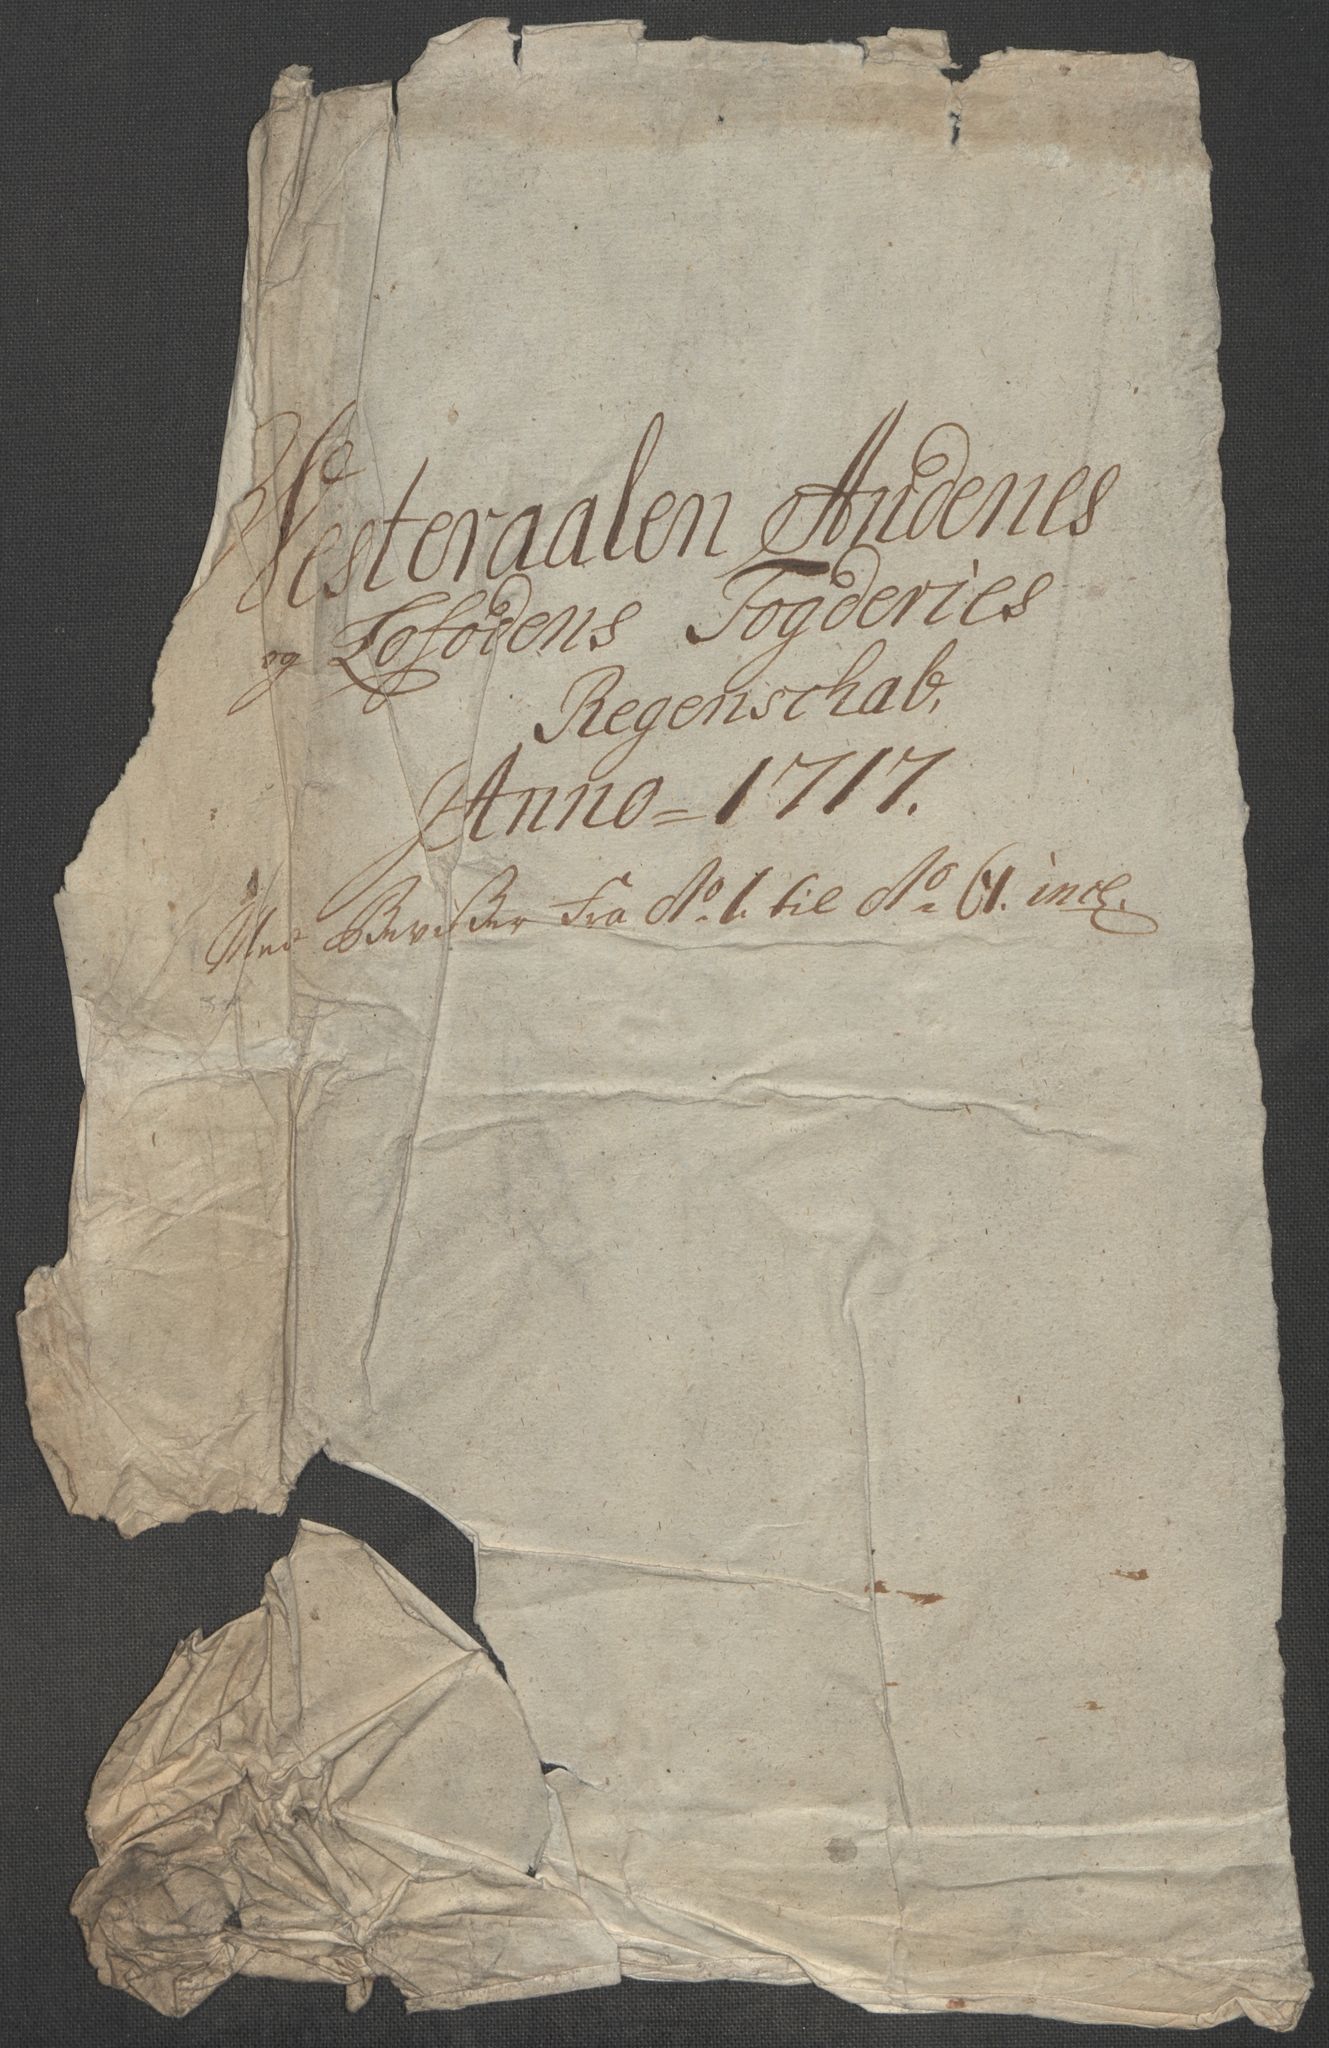 Westeraalen Andenes
og Lofodens Fogderies
Regenschab,
Anno=1717.
Med Beviser Fra No. 1. til No. 61. incl.